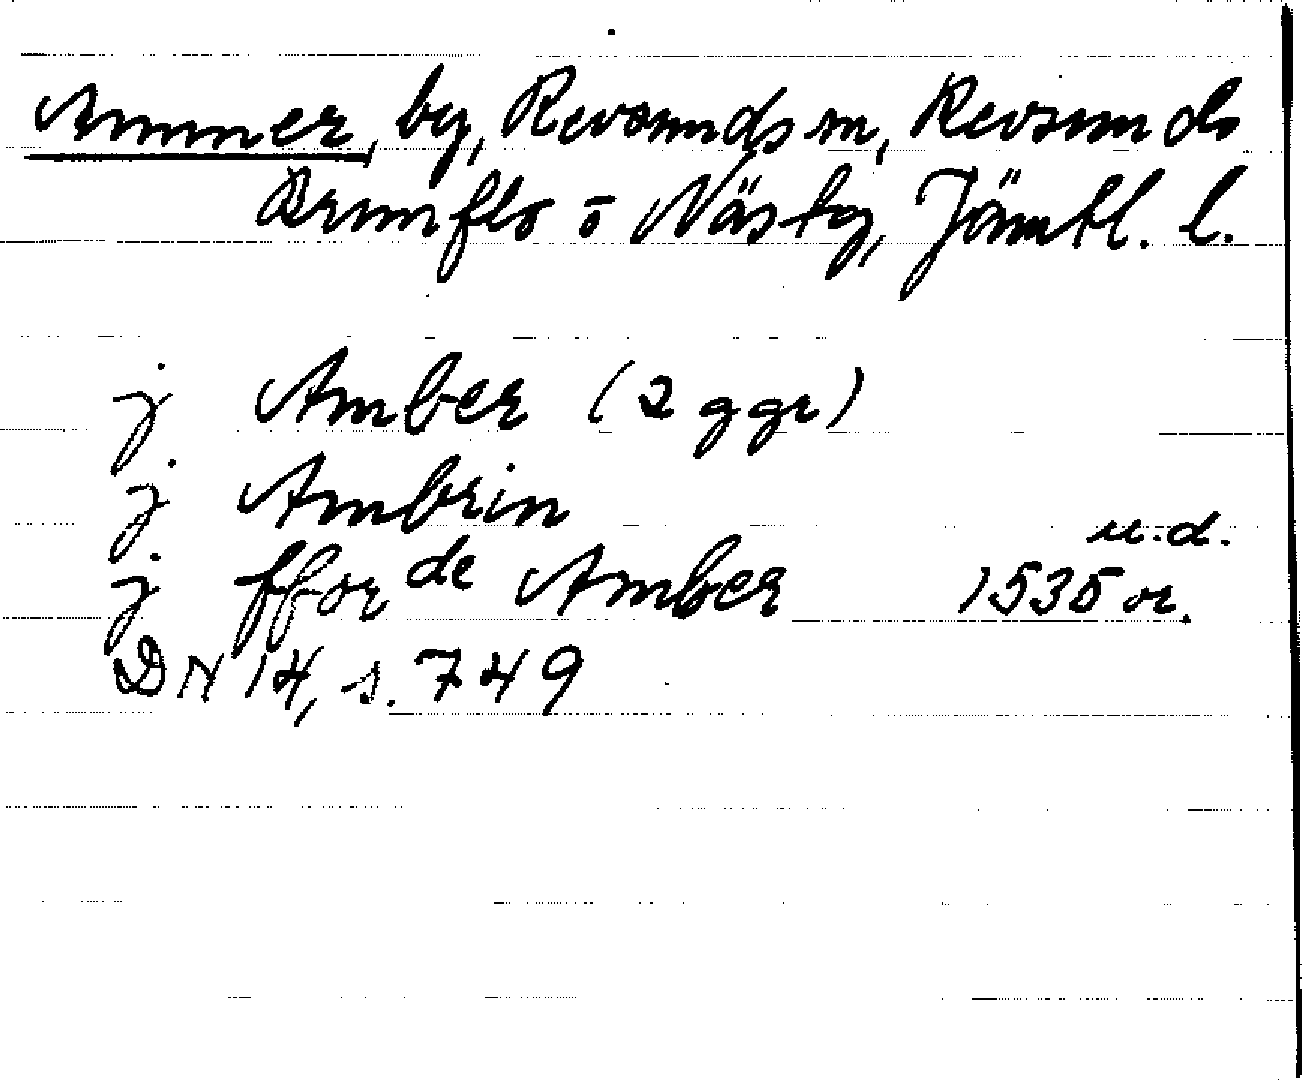 Ammer, by, Revsunds sn, Revsunds
Brunflo o Näs tg, Jämtl. l.
j Amber (2 ggr)
j Ambrin
u.d.
j ffor de Amber 1535 or.
DN 14, s. 749